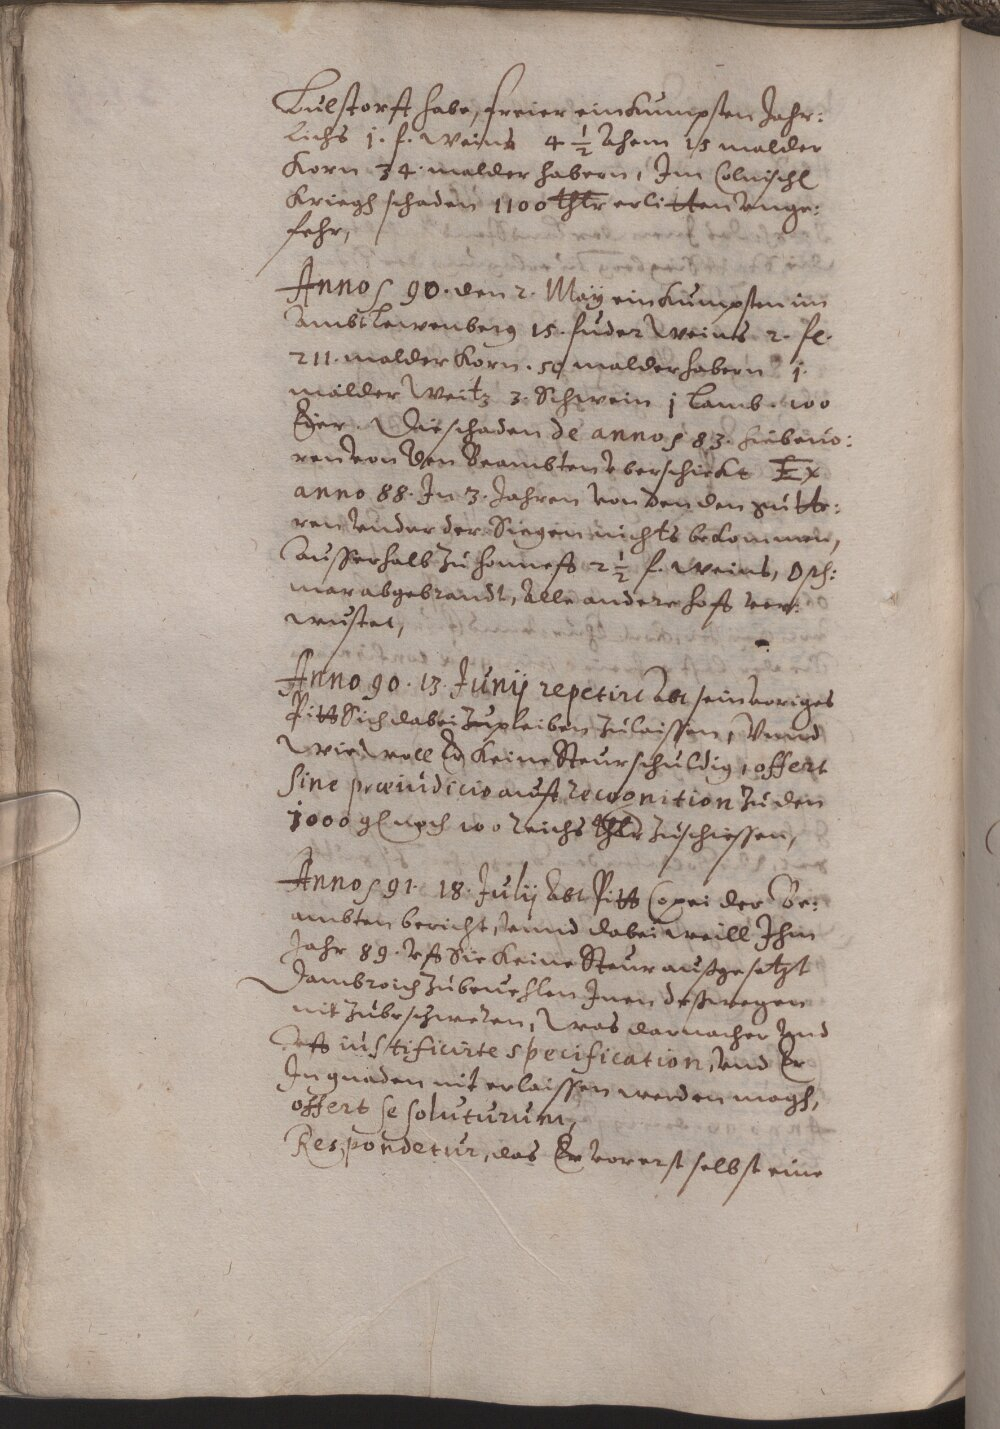 Lulstorff habe, freier einkumpsten Jahr:
lichs j. f. weins 4 1/2 ahem 15 malder
Korn 34 malder habern, Jm Colnischl
Kriegh schaden 1100 thlr erlitten unge:
fehr,
Anno 90. den 2. Maij einkumpsten im
ambt Lewenberg 15. fuder weins 2. fl.
211. malder Korn. 50 malder habern j.
malder Weitz 3. Schwein j Lamb. 100
Eyer. Die schaden de anno 83. hiebeuo:
ren von den Beambten uberschickt Ex
anno 88. Jn 3. Jahren von den den
ren under der Siegen nichts bekommen,
ausserhalb zu honneff 2 1/2 f. weins,
mar abgebrandt, alle andere hoff ver:
wustet,
Anno 90. 13. Junij repetirt Abt sein voriges
Pitt Sich dabei zupleiben zulaissen, Vnnd
wiewoll Er keine Steur schuldig, offert
sine præiudicio auff recognition zu den
1000 gl noch 100 Reichs thlr zuschiessen,
Anno 91. 18. Julij Abt Pitt Copei der Be:
ambten bericht, unnd dabei weill Jhm
Jahr 89. uff Sie keine Steur außgesetzt
Dambroich zubeuehlen Jnen deßwegen
nit zubeschweren, Was darnacher und
uff iustificirte specification, und Er
Jn gnaden nit erlaissen werden magh,
offert se soluturum,
Respondetur, das Er vorerst selbst eine